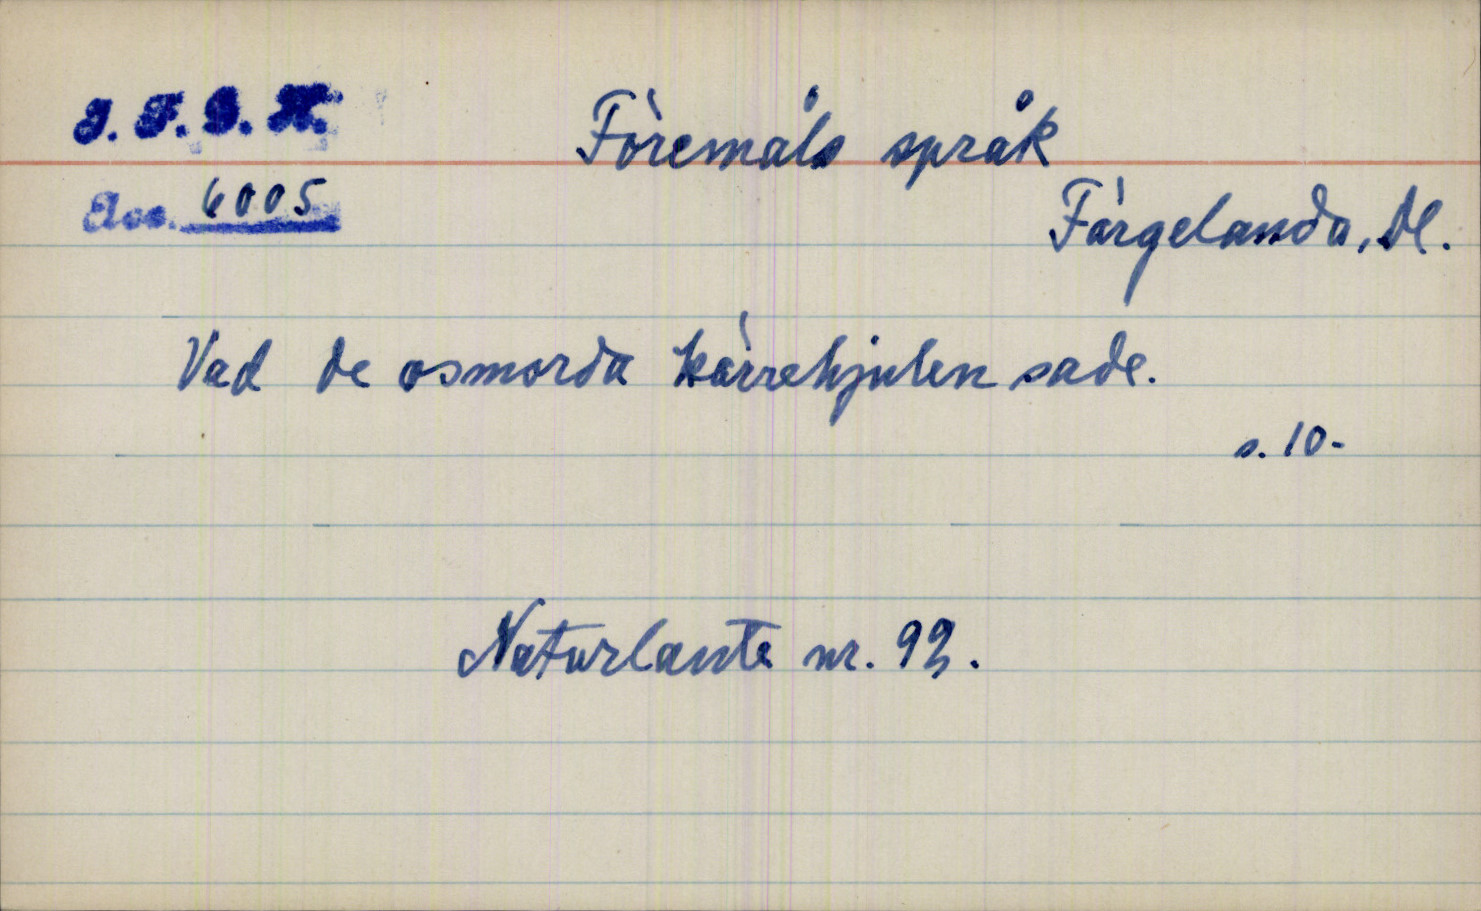 I. F. G. H.
Föremåls språk
Acc. 6005
Färgelanda, Dl.
Vad de osmorda kärrehjulen sade.
s. 10-
Naturlante nr. 92.